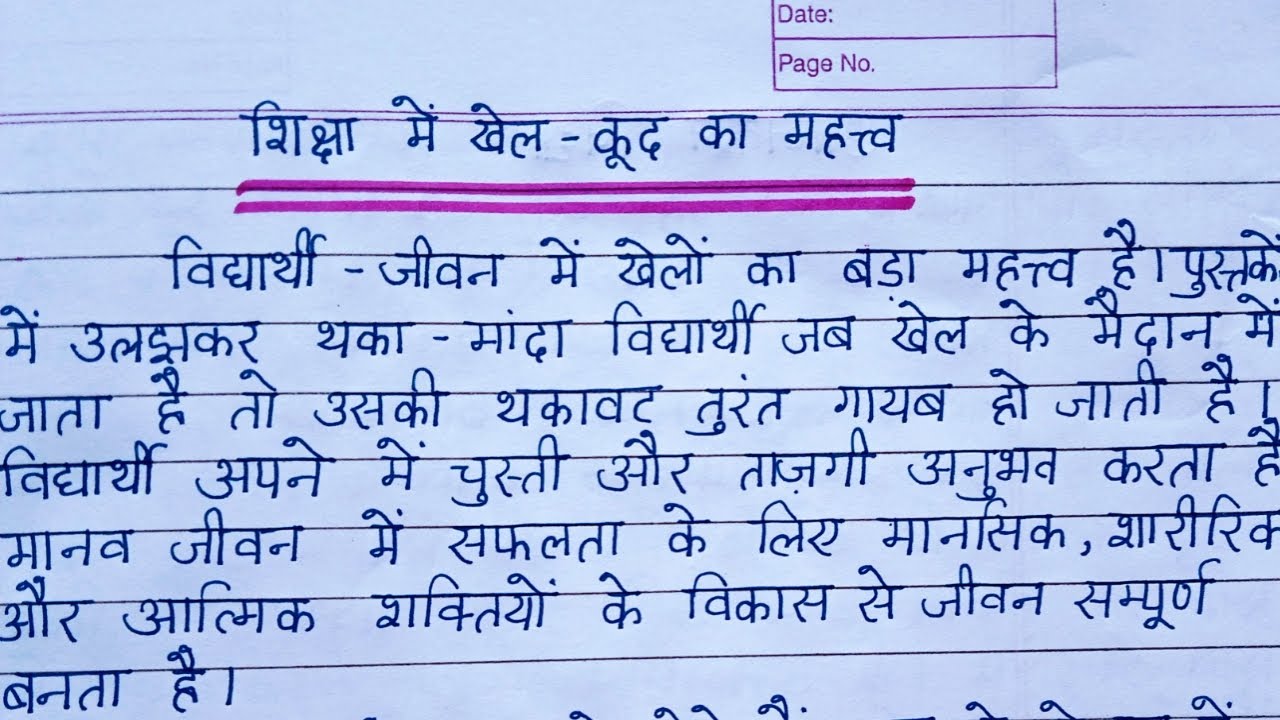 Date:
Page No.
शिक्षा में खेल - कूद का महत्त्व
विद्यार्थी - जीवन में खेलों का बड़ा महत्त्व है। पुस्तकों
में उलझकर थका - मांदा विद्यार्थी जब खेल के मैदान में
जाता है तो उसकी थकावट तुरंत गायब हो जाती है।
विद्यार्थी अपने में चुस्ती और ताज़गी अनुभव करता है
मानव जीवन में सफलता के लिए मानसिक, शारीरिक
और आत्मिक शक्तियों के विकास से जीवन सम्पूर्ण
बनता है।